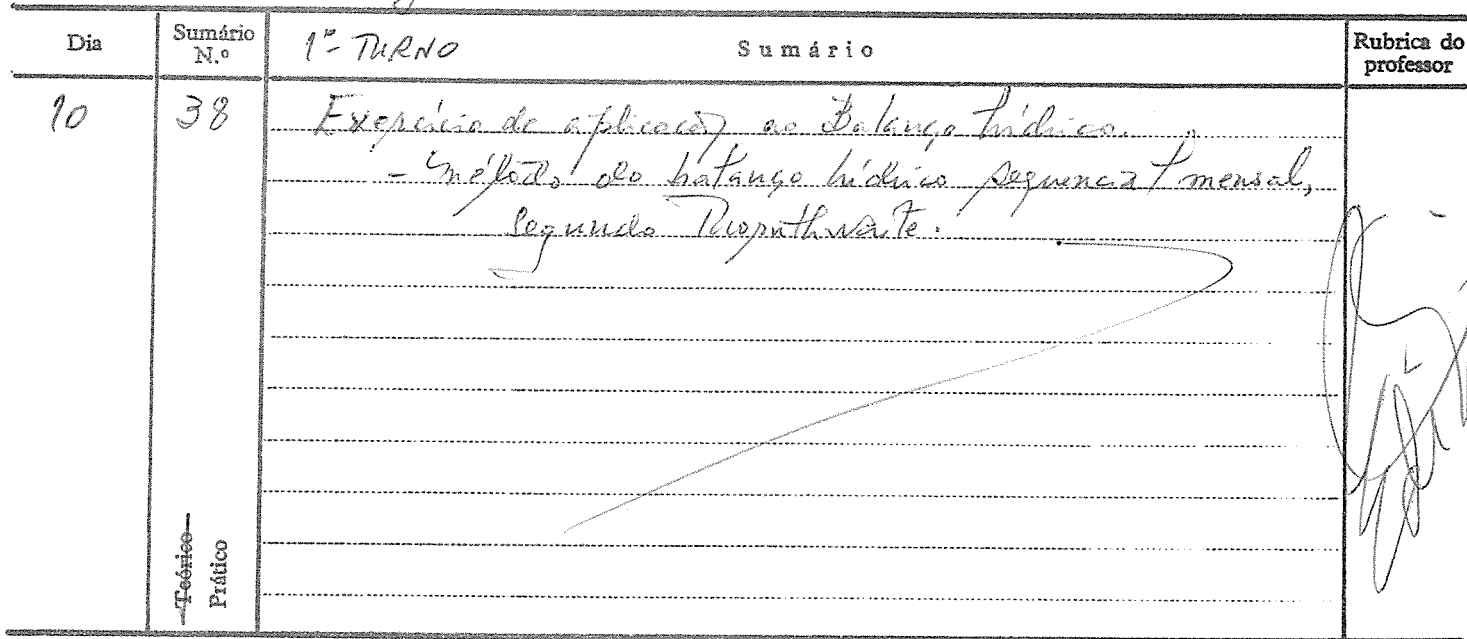 Dia
Sumário N.º
1º TURNO
Sumário
Rubrica do professor
10
38
Exercício de aplicação ao Balanço hídrico.
- método do balanço hídrico sequencial mensal,
segundo Thornthwaite.
Teórico
Prático